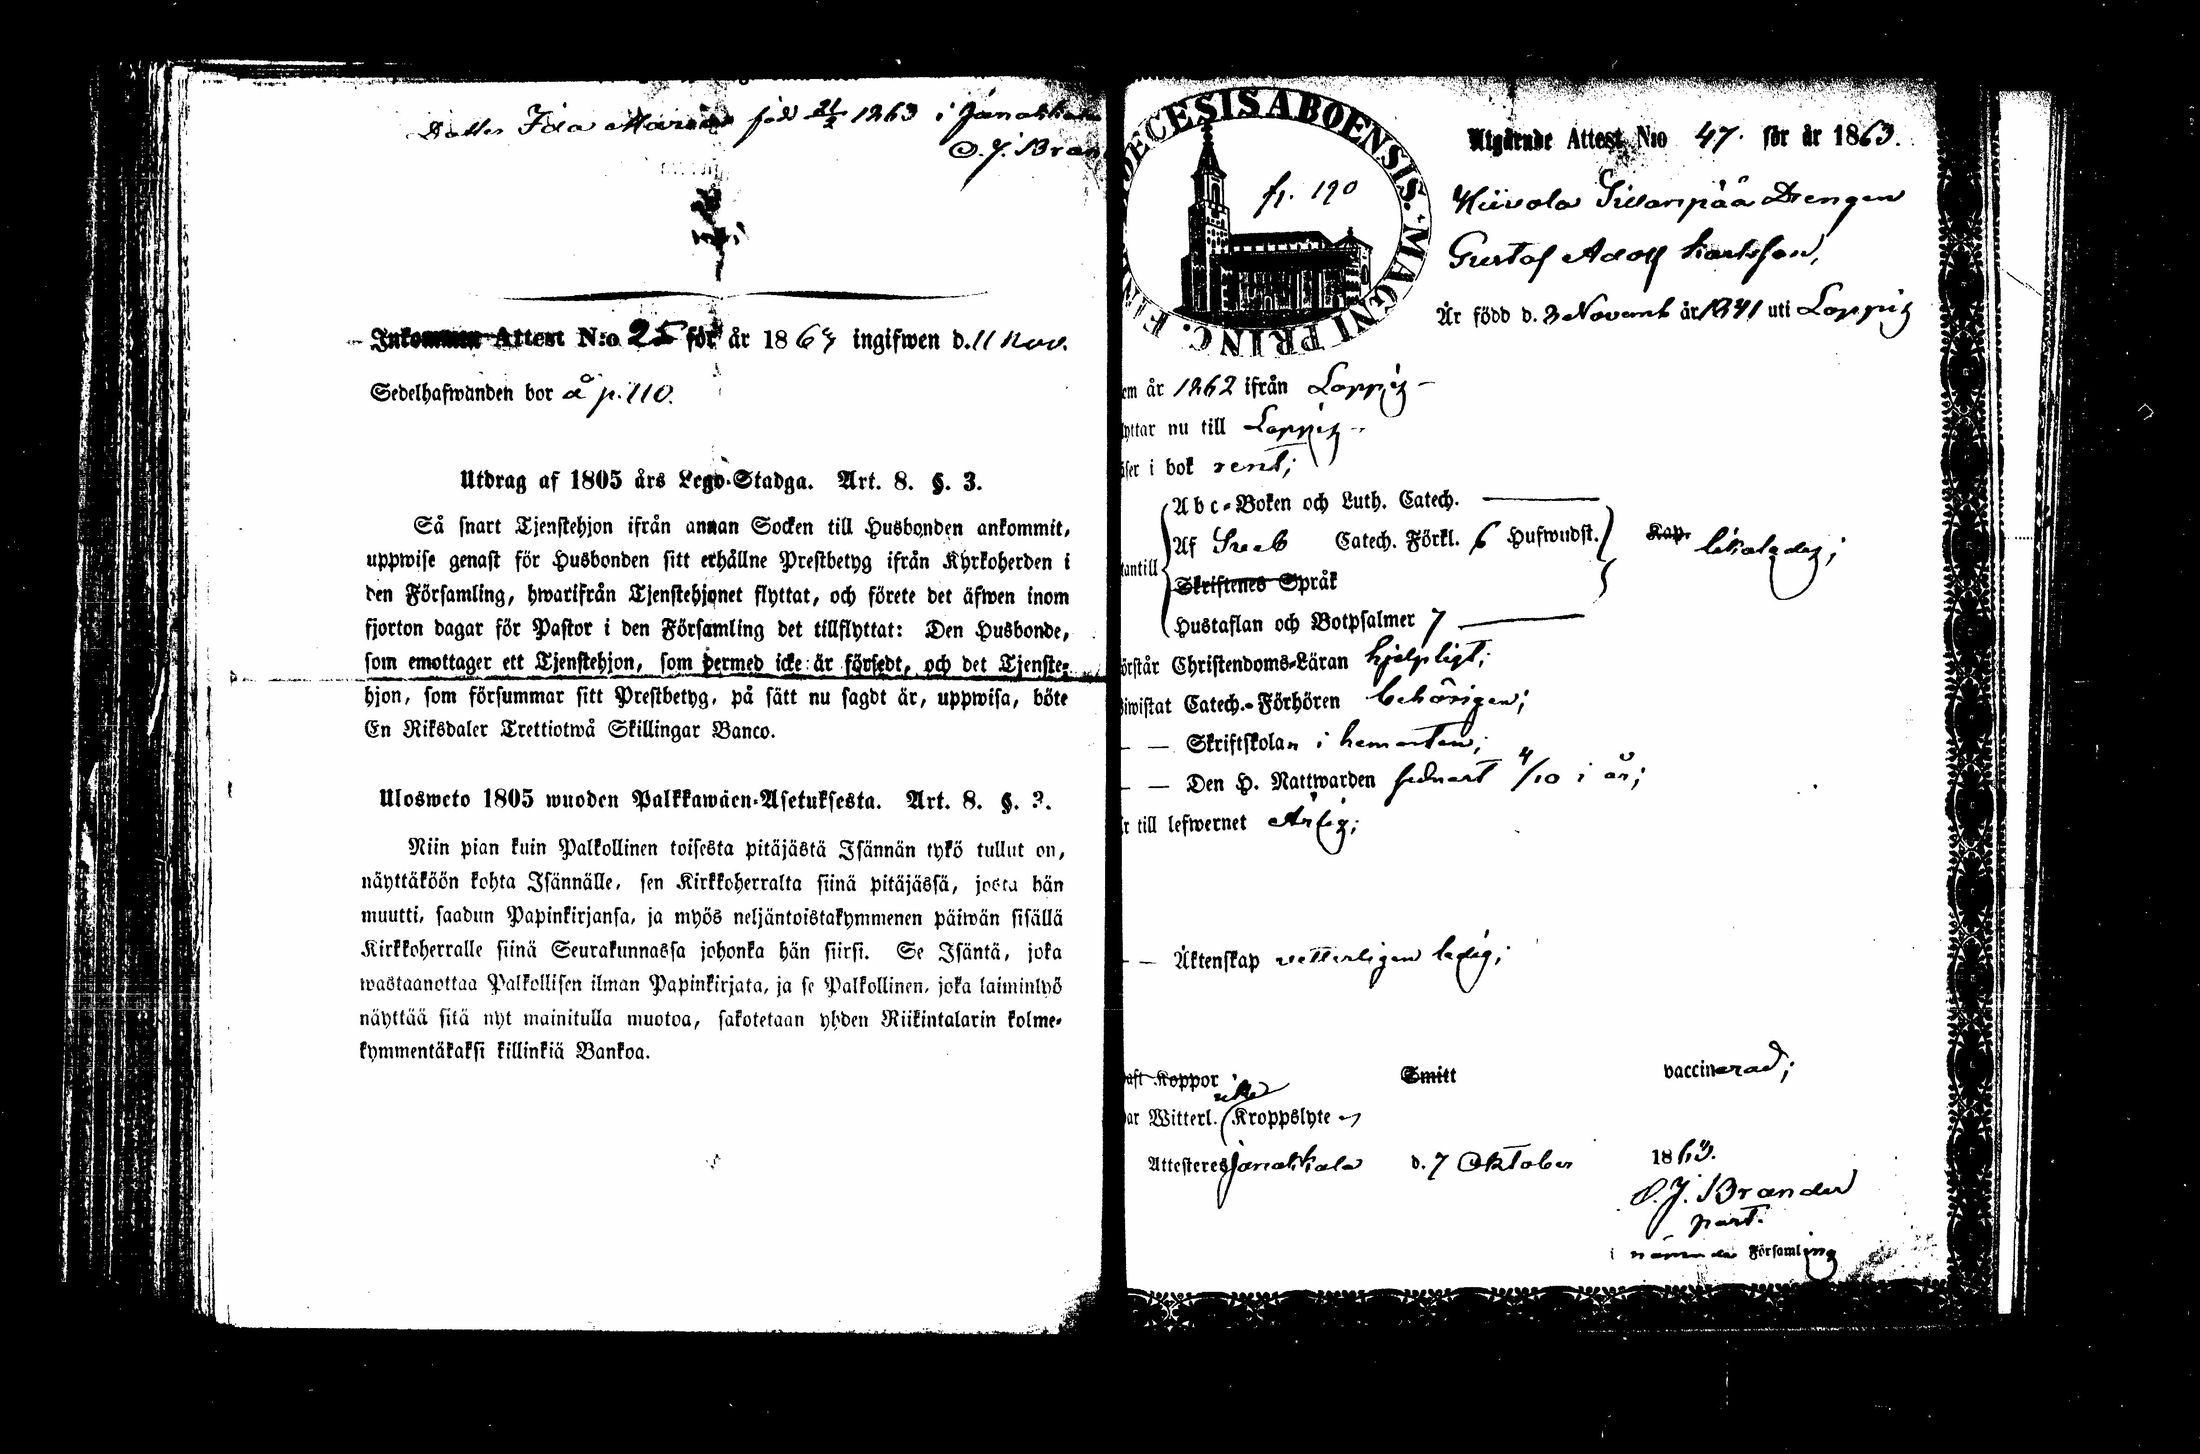 Dotter Ida Maria föd 21/2 1863 i Janakkala
O. J. Bran
Inkommen Attest N:o 25 för år 1863 ingifwen d. 11 Nov.
Sedelhafwanden bor å p. 110.
Utdrag af 1805 års Lego-Stadga. Art. 8. §. 3.
Så snart Tjenstehjon ifrån annan Socken till Husbonden ankommit,
uppwise genast för Husbonden sitt erhållne Prestbetyg ifrån Kyrkoherden i
den Församling, hwarifrån Tjenstehjonet flyttat, och förete det äfwen inom
fjorton dagar för Pastor i den Församling det tillflyttat: Den Husbonde,
som emottager ett Tjenstehjon, som dermed icke är försedt, och det Tjenste-
hjon, som försummar sitt Prestbetyg, på sätt nu sagdt är, uppwisa, böte
En Riksdaler Trettiotwå Skillingar Banco.
Ulosweto 1805 wuoden Palkkawäen-Asetuksesta. Art. 8. §. 3.
Niin pian kuin Palkollinen toisesta pitäjästä Isännän tykö tullut on,
näyttäköön kohta Isännälle, sen Kirkkoherralta siinä pitäjässä, josta hän
muutti, saadun Papinkirjansa, ja myös neljäntoistakymmenen päiwän sisällä
Kirkkoherralle siinä Seurakunnassa johonka hän siirsi. Se Isäntä, joka
wastaanottaa Palkollisen ilman Papinkirjata, ja se Palkollinen, joka laiminlyö
näyttää sitä nyt mainitulla muotoa, sakotetaan yhden Riikintalarin kolme-
kymmentäkaksi killinkiä Bankoa.
DIOECESIS ABOENSIS. MAGNI PRINC. FIN
fr. 190
Utgående Attest N:o 47. för år 1863.
Hiivola Siivaripää Drengen
Gustaf Adolf Karlsson,
Är född d. 3 Novemb år 1841 uti Loppis
em år 1862 ifrån Loppis
lyttar nu till Loppis
äser i bok rent;
Abc-Boken och Luth. Catech.
Af Sveb Catech. Förkl. 6 Hufwudst. Kap. likaledes;
tantill
Skriftenes Språk
Hustaflan och Botpsalmer 7
örstår Christendoms-Läran hjelpligt;
iwistat Catech.-Förhören behörigen;
— — Skriftskolan i hemorten;
— — Den H. Nattwarden sednast 4/10 i år;
r till lefwernet Ärlig;
— — Äktenskap vetterligen ledig;
aft Koppor Smitt vaccinerad;
icke
ar Witterl. Kroppslyte
Attesteres Janakkala d. 7 Oktober 1863.
O. J. Brander
past.
i nämnde Församling